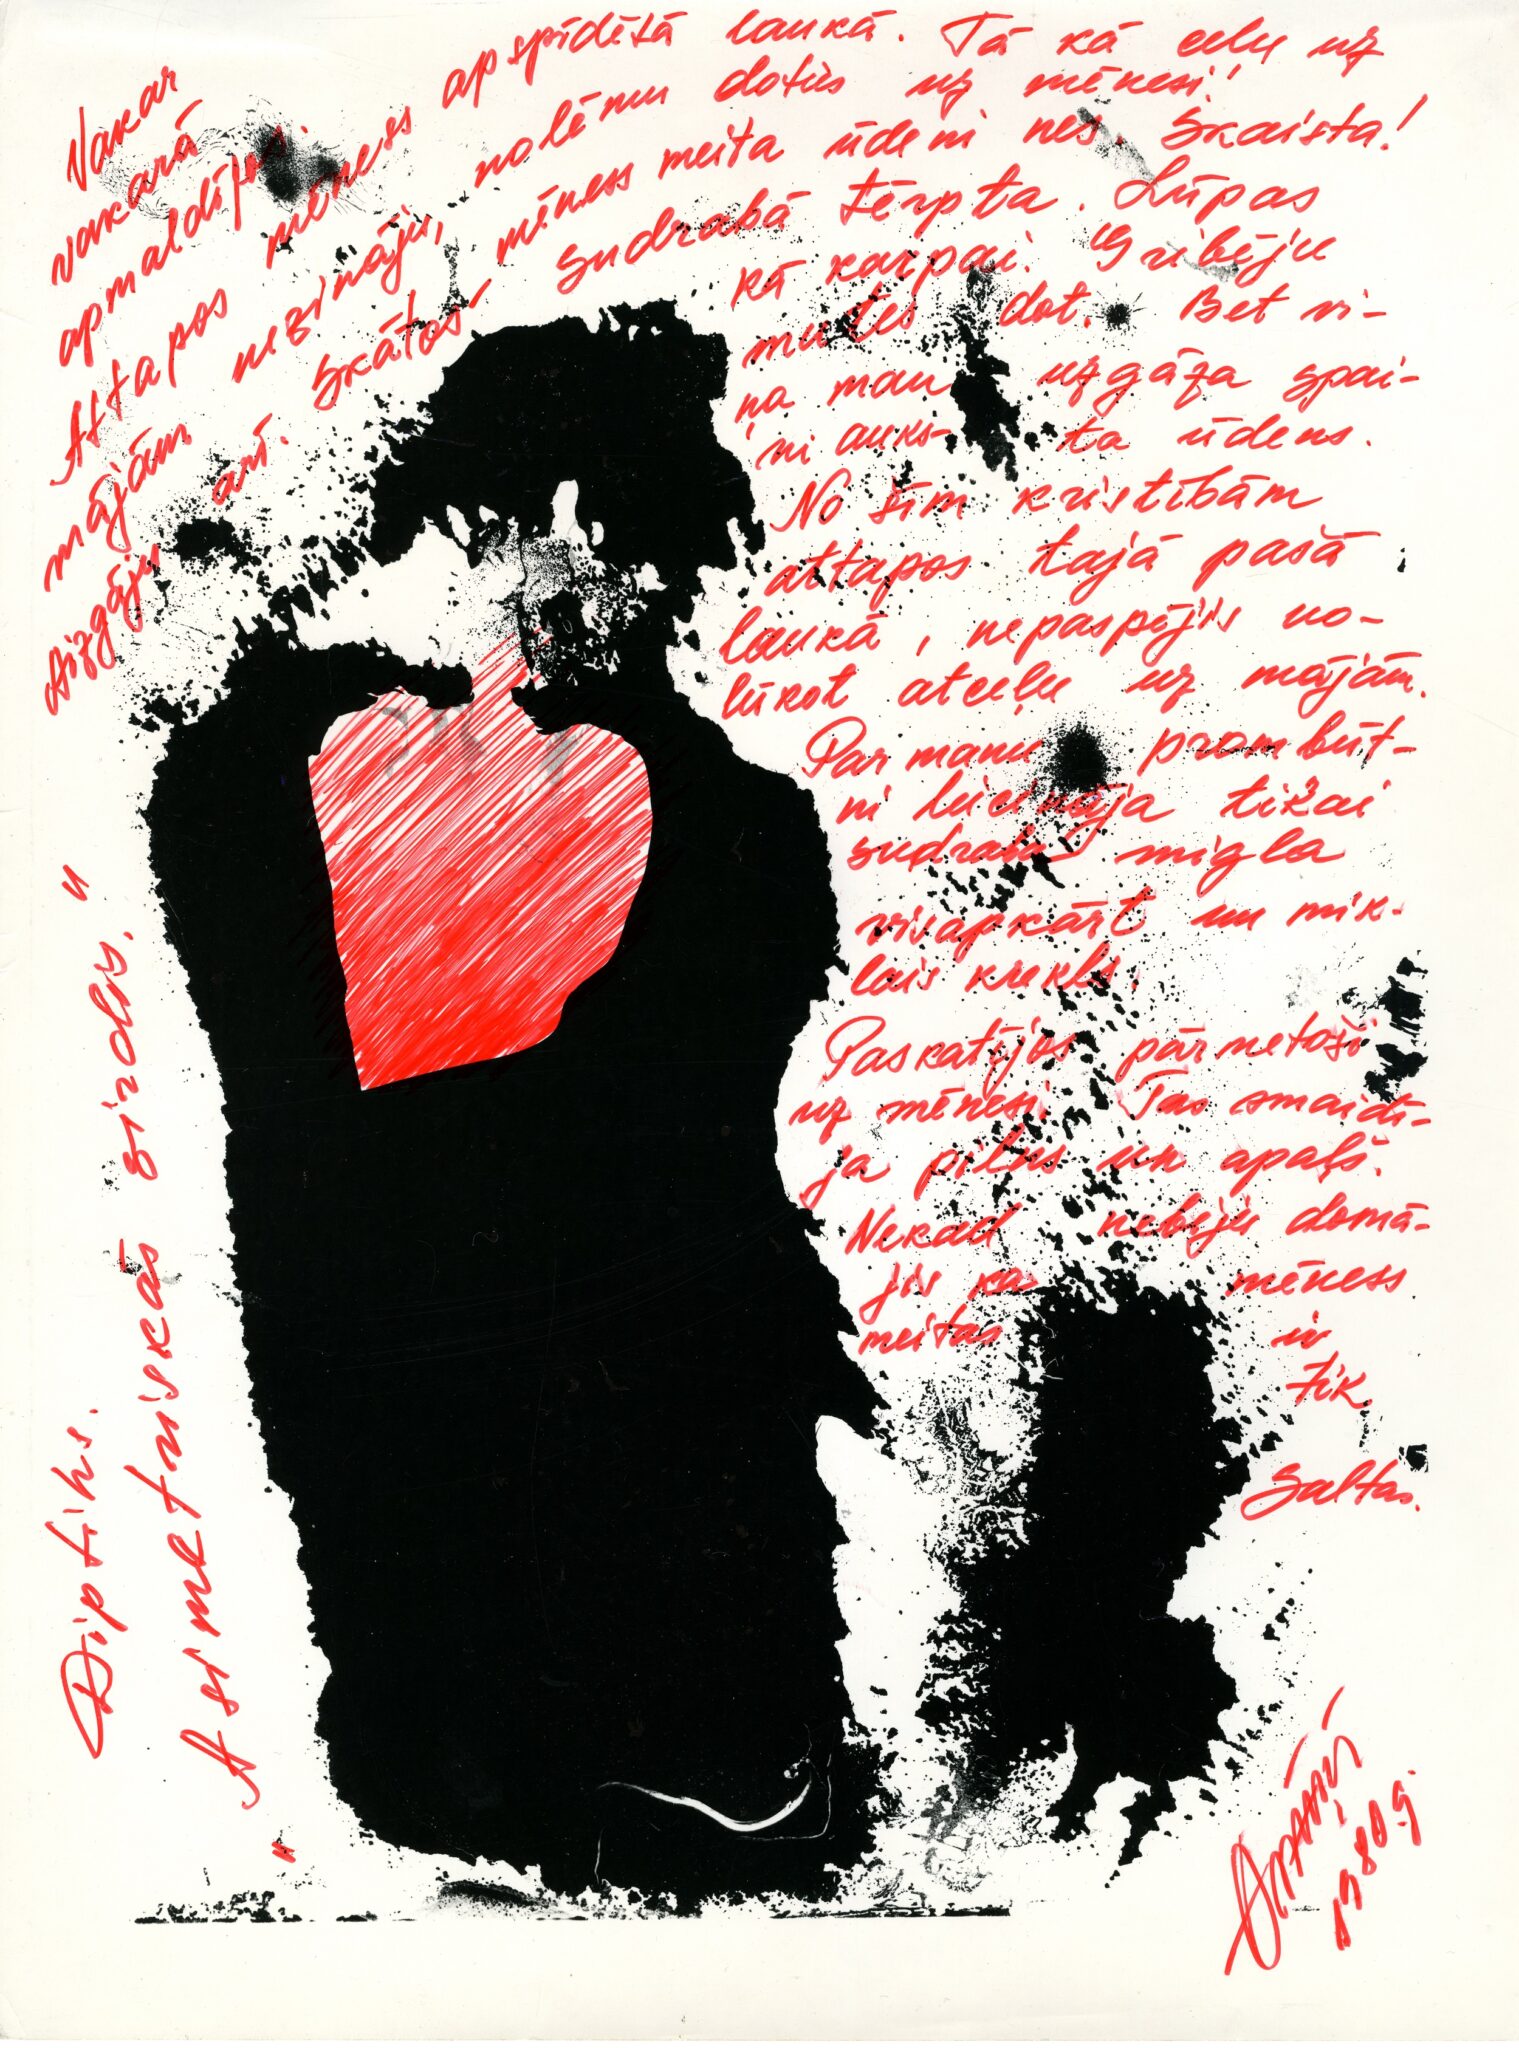 Vakar
vakarā
apmaldījos.
Attapos mēness apspīdētā laukā. Tā kā ceļu uz
mājām nezināju, nolēmu doties uz mēnesi!
Aizgāju arī. Skātos- mēness meita ūdeni nes. Skaista!
Sudrabā tērpta. Lūpas
kā karpai. Gribēju
mutes dot. Bet vi-
ņa man uzgāza spai-
ni auks- ta ūdens.
No šīm kristībām
attapos tajā pašā
laukā, nepaspējis no-
lūkot atceļu uz mājām.
Par manu prombūt-
ni liecināja tikai
sudraba migla
visapkārt un mik-
lais krekls.
Paskatījos pārmetoši
uz mēnesi. Tas smaidī-
ja pilns un apaļš.
Nekad nebiju domā-
jis ka mēness
meitas ir
tik
saltas.
Diptihs.
"Asimetriskās sirdis."
1980.g.